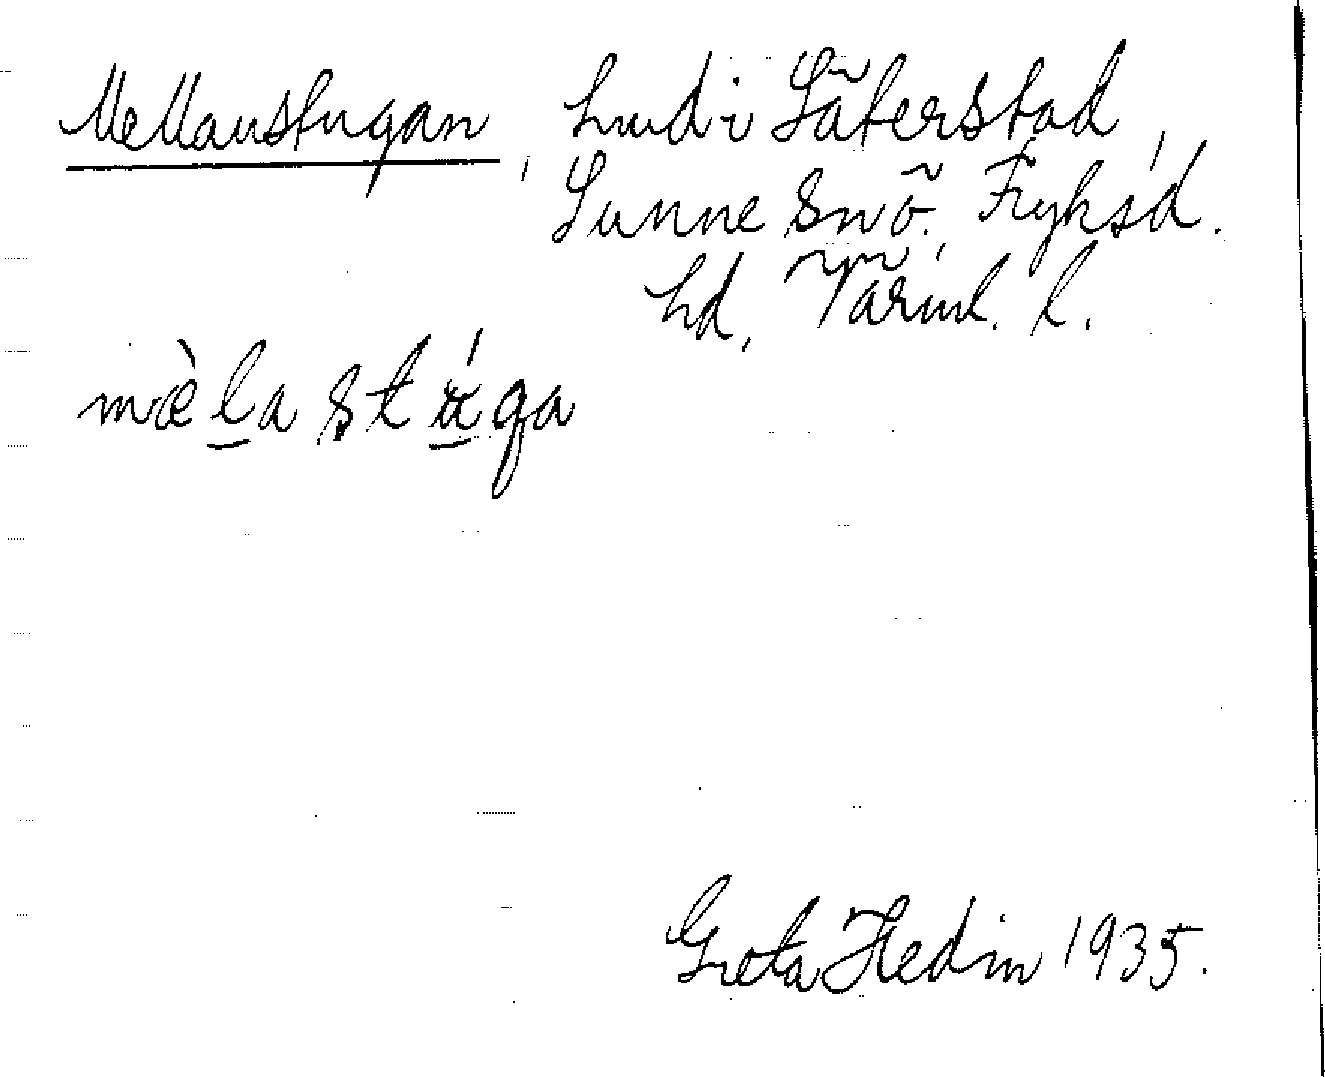 Mellanstugan, hmd i Säterstad,
Sunne snö. Fryksd.
hd, Värml. l.
mæ̀la stúga
Greta Hedin 1935.